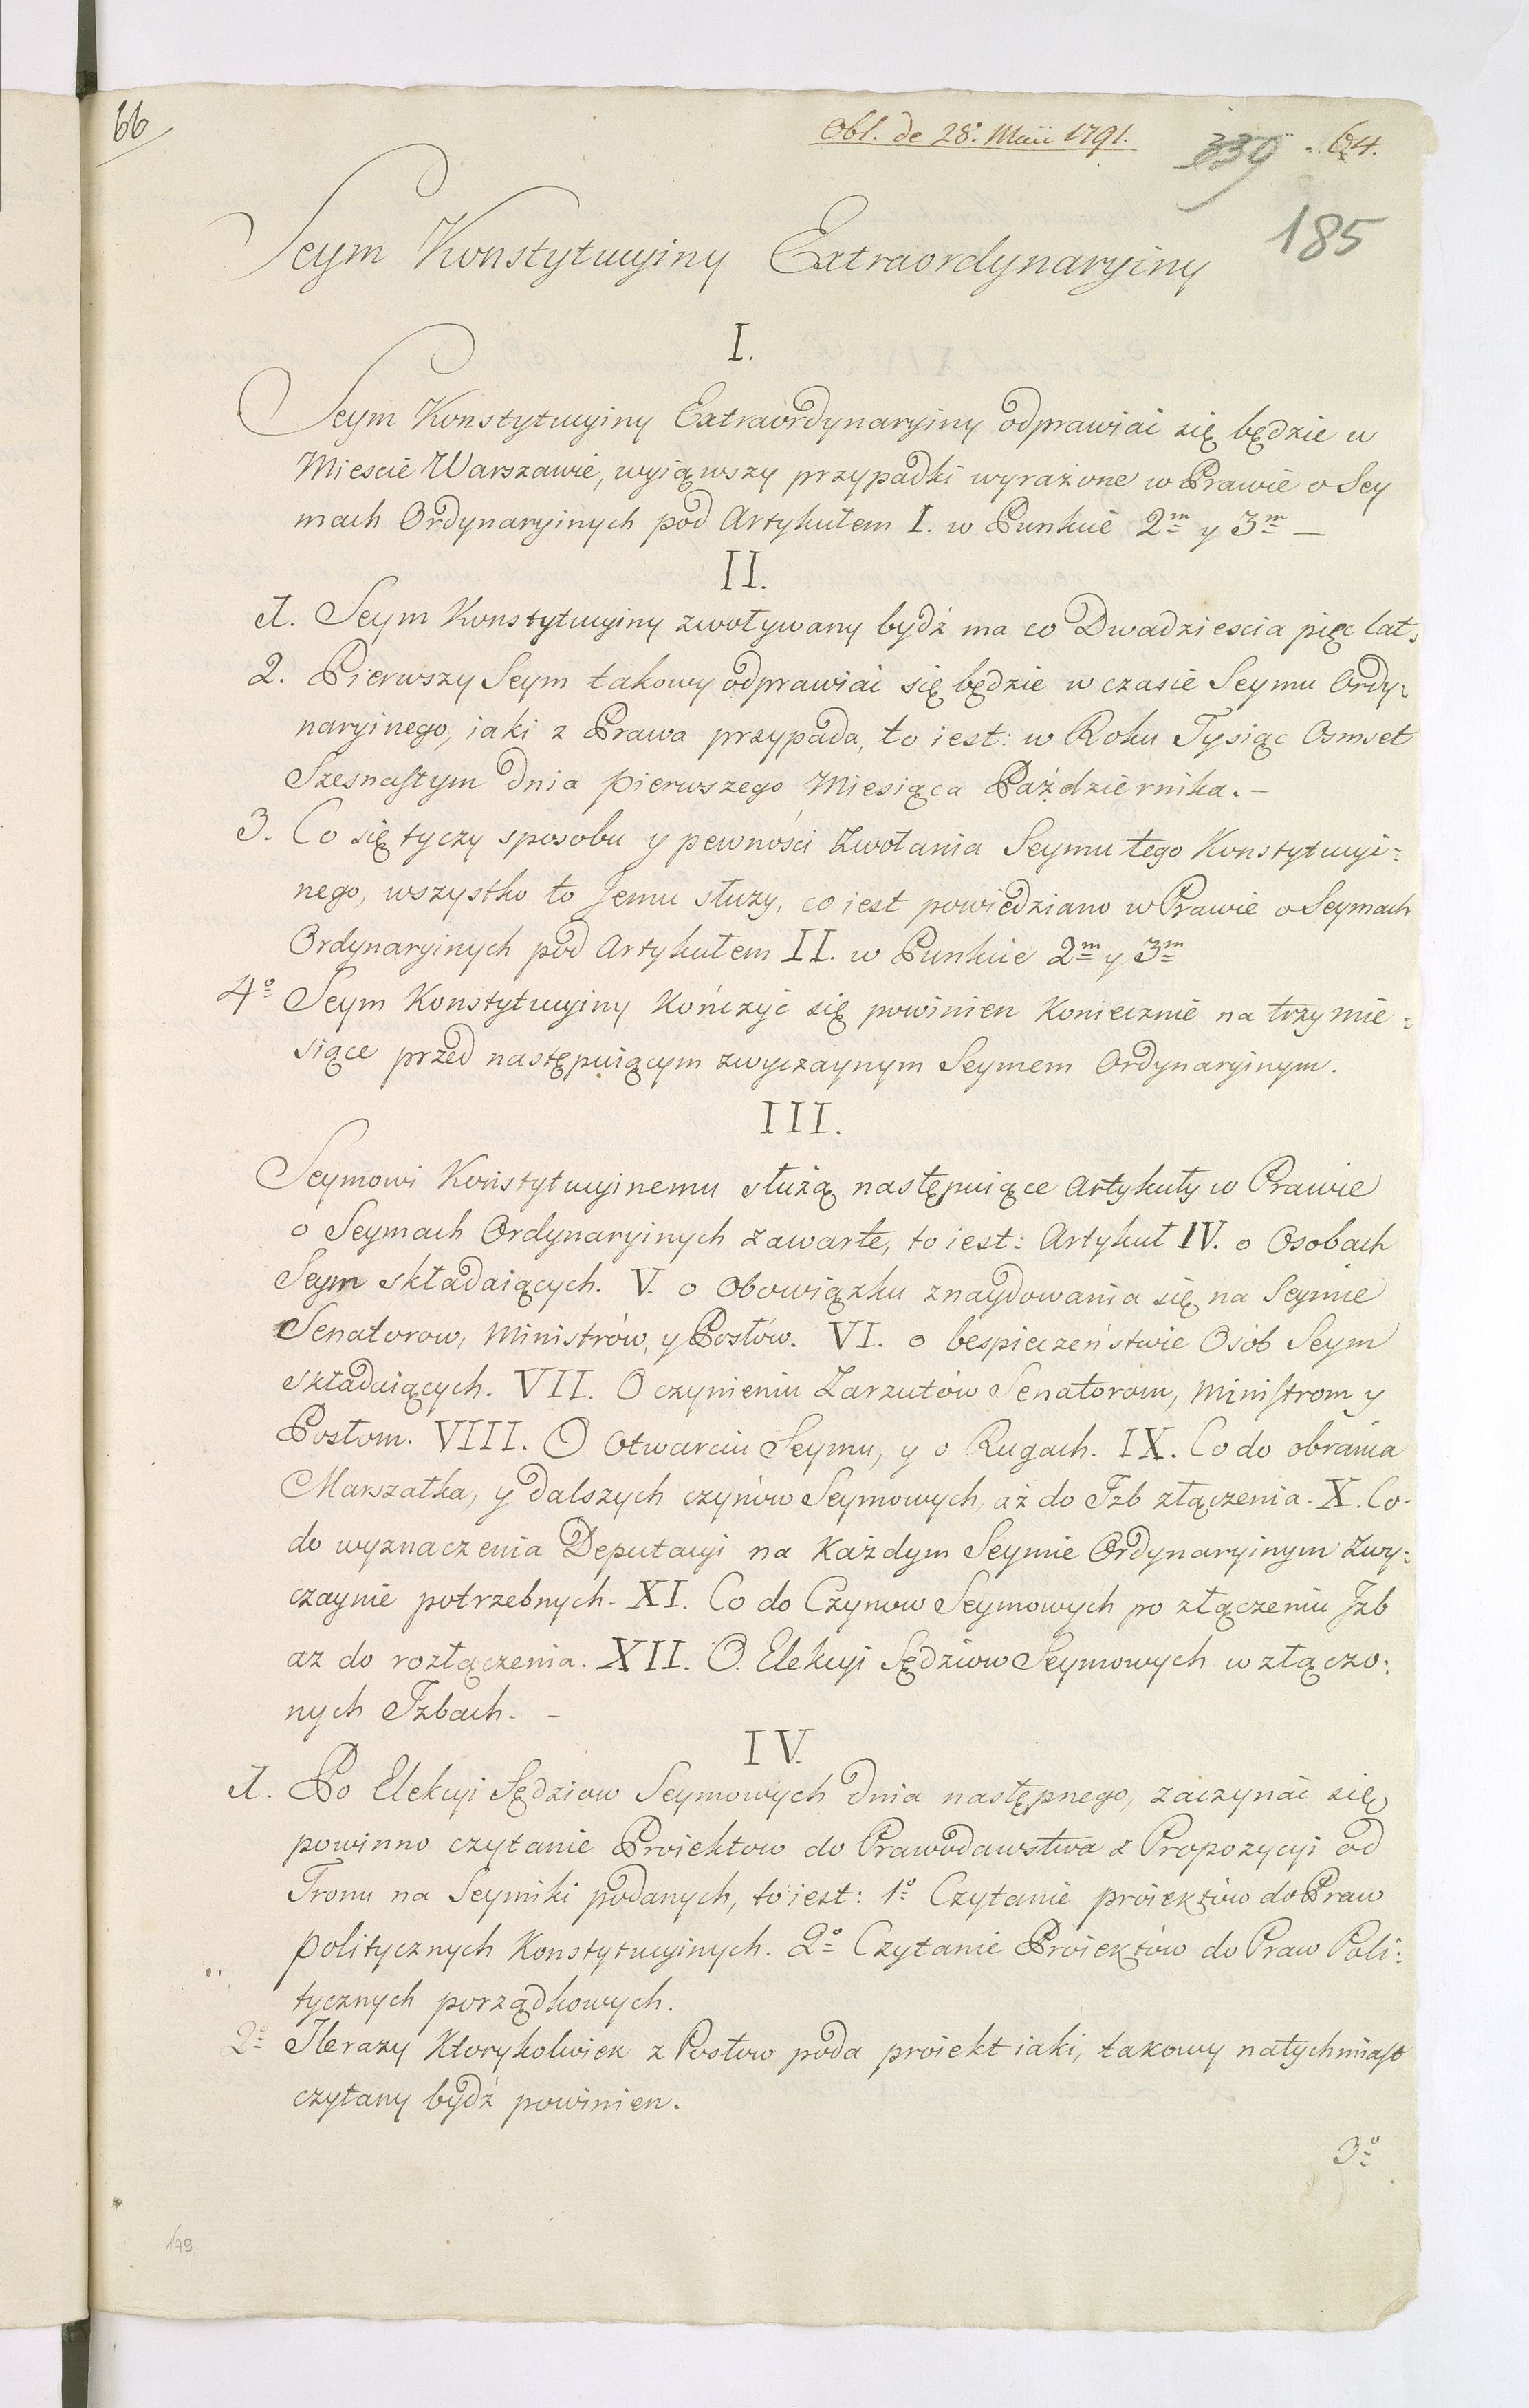 66
Obl. de 28. Maii 1791.
339 64.
185
Seym Konstytucyiny Extraordynaryiny
I.
Seym Konstytucyiny Extraordynaryiny odprawiać się będzie w
Miescie Warszawie, wyiąwszy przypadki wyrażone w Prawie o Sey
mach Ordynaryinych pod Artykułem I. w Punkcie 2m y 3m —
II.
1. Seym Konstytucyiny zwoływany bydź ma co Dwadziescia pięc lat,
2. Pierwszy Seym takowy odprawiać się będzie w czasie Seymu Ordy:
naryinego, iaki z Prawa przypada, to iest: w Roku Tysiąc Osmset
Szesnastym dnia pierwszego Miesiąca Października. –
3. Co się tyczy sposobu y pewności Zwołania Seymu tego Konstytucyi:
nego, wszystko to Jemu służy, co iest powiedziano w Prawie o Seymach
Ordynaryinych pod Artykułem II. w Punkcie 2m y 3m
4o Seym Konstytucyiny kończyć się powinien koniecznie na trzy mie:
siące przed następuiącym zwyczaynym Seymem Ordynaryinym.
III.
Seymowi Konstytucyinemu służą następuiące Artykuły w Prawie
o Seymach Ordynaryinych zawarte, to iest: Artykuł IV. o Osobach
Seym składaiących. V. o Obowiązku znaydowania się na Seymie
Senatorow, Ministrów, y Posłów. VI. o bespieczeństwie Osób Seym
składaiących. VII. O czynieniu Zarzutów Senatorom, Ministrom y
Posłom. VIII. O Otwarciu Seymu, y o Rugach. IX. Co do obrania
Marszałka, y dalszych czynów Seymowych, aż do Izb złączenia. X. Co
do wyznaczenia Deputacyi na każdym Seymie Ordynaryinym Zwy:
czaynie potrzebnych. XI. Co do Czynow Seymowych po złączeniu Izb
az do rozłączenia. XII. O. Elekcyi Sędziow Seymowych w złączo:
nych Izbach. –
IV.
1. Po Elekcyi Sędziow Seymowych dnia następnego, zaczynać się
powinno czytanie Proiektow do Prawodawstwa z Propozycyi od
Tronu na Seymiki podanych, to iest: 1o Czytanie proiektów do Praw
politycznych Konstytucyinych. 2o Czytanie Proiektów do Praw Poli:
tycznych porządkowych.
2o Ilerazy ktorykolwiek z Posłow poda proiekt iaki, takowy natychmiast
czytany bydź powinien.
3o
179